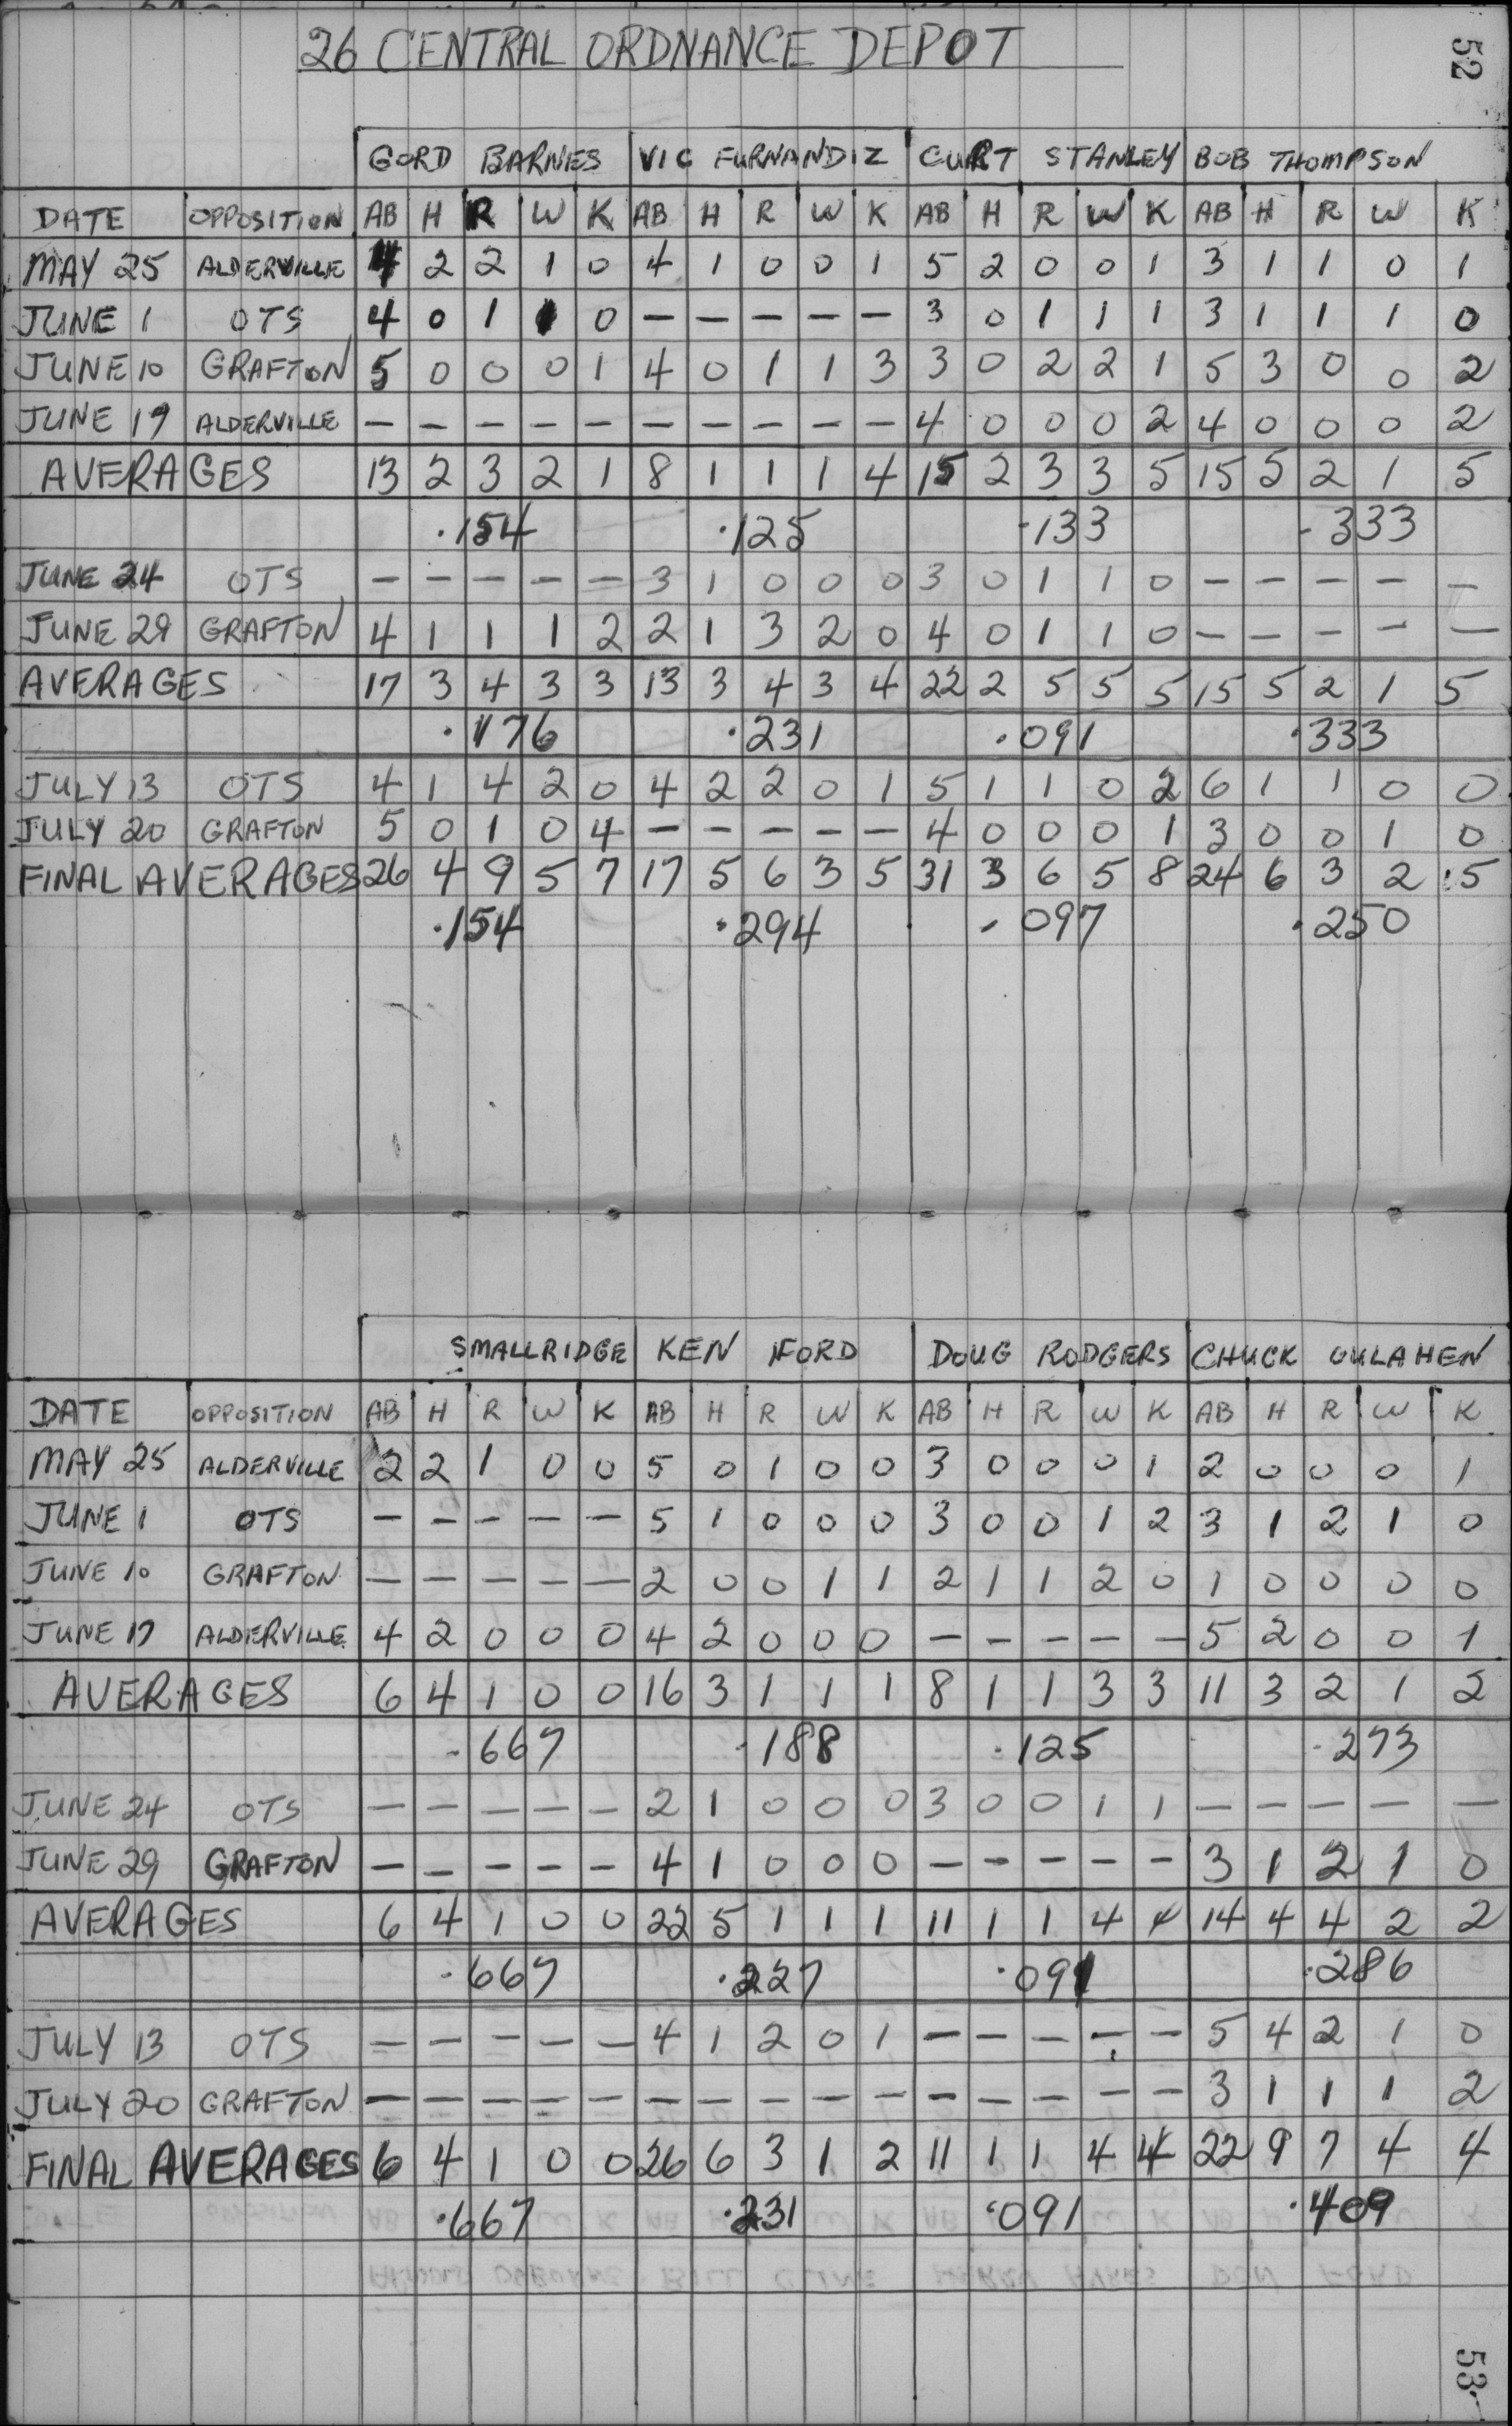 52
26 CENTRAL ORDNANCE DEPOT
GORD BARNES VIC FURNANDIZ CURT STANLEY BOB THOMPSON
DATE OPPOSITION AB H R W K AB H R W K AB H R W K AB H R W K
MAY 25 ALDERVILLE 4 2 2 1 0 4 1 0 0 1 5 2 0 0 1 3 1 1 0 1
JUNE 1 OTS 4 0 1 1 0 — — — — — 3 0 1 1 1 3 1 1 1 0
JUNE 10 GRAFTON 5 0 0 0 1 4 0 1 1 3 3 0 2 2 1 5 3 0 0 2
JUNE 19 ALDERVILLE — — — — — — — — — — 4 0 0 0 2 4 0 0 0 2
AVERAGES 13 2 3 2 1 8 1 1 1 4 15 2 3 3 5 15 5 2 1 5
.154 .125 .133 .333
JUNE 24 OTS — — — — — 3 1 0 0 0 3 0 1 1 0 — — — — —
JUNE 29 GRAFTON 4 1 1 1 2 2 1 3 2 0 4 0 1 1 0 — — — — —
AVERAGES 17 3 4 3 3 13 3 4 3 4 22 2 5 5 5 15 5 2 1 5
.176 .231 .091 .333
JULY 13 OTS 4 1 4 2 0 4 2 2 0 1 5 1 1 0 2 6 1 1 0 0
JULY 20 GRAFTON 5 0 1 0 4 — — — — — 4 0 0 0 1 3 0 0 1 0
FINAL AVERAGES 26 4 9 5 7 17 5 6 3 5 31 3 6 5 8 24 6 3 2 5
.154 .294 .097 .250
SMALLRIDGE KEN FORD DOUG RODGERS CHUCK OULAHEN
DATE OPPOSITION AB H R W K AB H R W K AB H R W K AB H R W K
MAY 25 ALDERVILLE 2 2 1 0 0 5 0 1 0 0 3 0 0 0 1 2 0 0 0 1
JUNE 1 OTS — — — — — 5 1 0 0 0 3 0 0 1 2 3 1 2 1 0
JUNE 10 GRAFTON — — — — — 2 0 0 1 1 2 1 1 2 0 1 0 0 0 0
JUNE 17 ALDERVILLE 4 2 0 0 0 4 2 0 0 0 — — — — — 5 2 0 0 1
AVERAGES 6 4 1 0 0 16 3 1 1 1 8 1 1 3 3 11 3 2 1 2
.667 .188 .125 .273
JUNE 24 OTS — — — — — 2 1 0 0 0 3 0 0 1 1 — — — — —
JUNE 29 GRAFTON — — — — — 4 1 0 0 0 — — — — — 3 1 2 1 0
AVERAGES 6 4 1 0 0 22 5 1 1 1 11 1 1 4 4 14 4 4 2 2
.667 .227 .091 .286
JULY 13 OTS — — — — — 4 1 2 0 1 — — — — — 5 4 2 1 0
JULY 20 GRAFTON — — — — — — — — — — — — — — — 3 1 1 1 2
FINAL AVERAGES 6 4 1 0 0 26 6 3 1 2 11 1 1 4 4 22 9 7 4 4
.667 .231 .091 .409
53